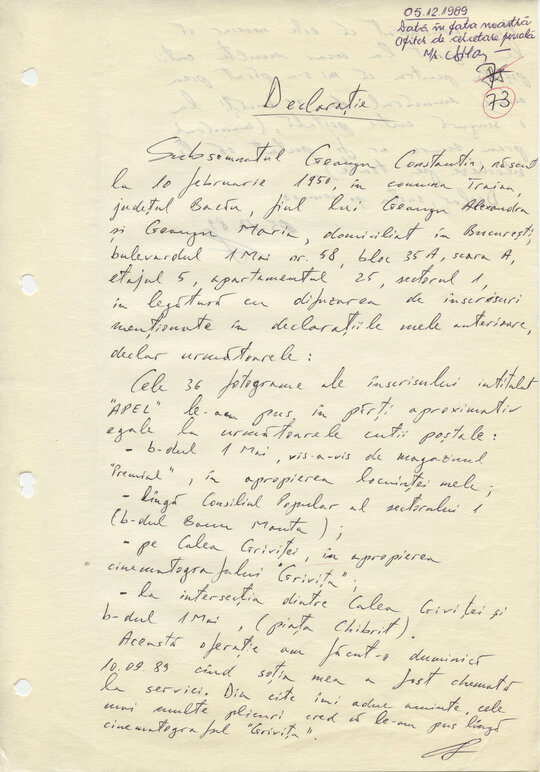 05.12.1989
Dată în fața noastră
Ofițer de cercetare penală
Mr.
73
Declarație
Subsemnatul Geangu Constantin, născut
la 10 februarie 1950, în comuna Traian,
județul Bacău, fiul lui Geangu Alexandra
și Geangu Maria, domiciliat în București,
bulevardul 1 Mai nr. 58, bloc 35A, scara A,
etajul 5, apartamentul 25, sectorul 1,
in legătură cu difuzarea de înscrisuri
menționate în declarațiile mele anterioare,
declar următoarele :
Cele 36 fotograme ale înscrisului intitulat
"APEL" le-am pus în părți aproximativ
egale la următoarele cutii poștale :
- b-dul 1 Mai, vis-a-vis de magazinul
"Premial", în apropierea locuinței mele ;
- lîngă Consiliul Popular al sectorului 1
(b-dul Banu Manta) ;
- pe Calea Griviței, în apropierea
cinematografului "Grivița" ;
- la intersecția dintre Calea Griviței și
b-dul 1 Mai, (piața Chibrit).
Această operație am făcut-o duminică
10.09.89 cînd soția mea a fost chemată
la servici. Din cîte îmi aduc aminte, cele
mai multe plicuri cred că le-am pus lîngă
cinematograful "Grivița".